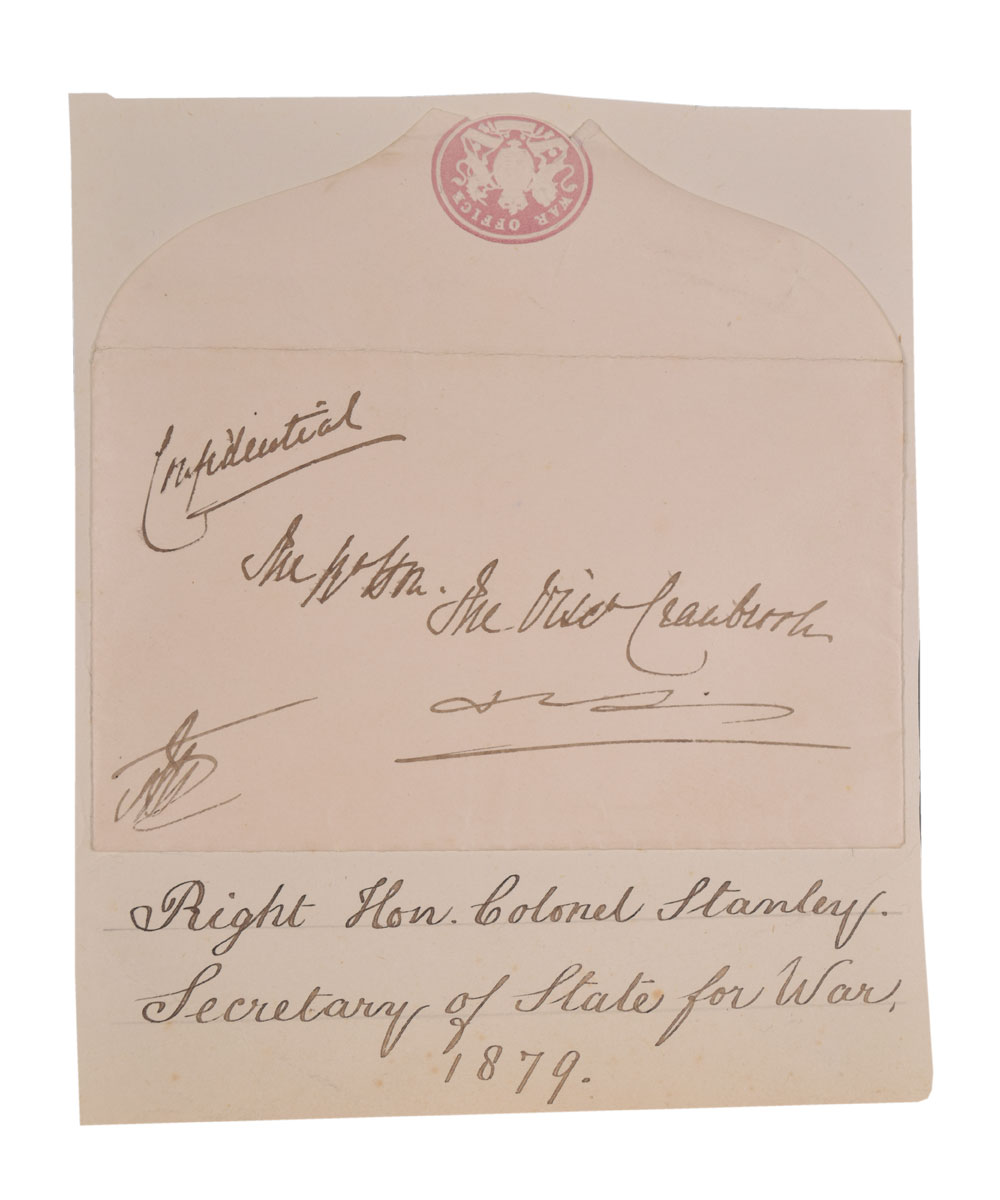 WAR OFFICE
Confidential
The Rt Hon.
The Visct Cranbrook
Right Hon. Colonel Stanley.
Secretary of State for War,
1879.